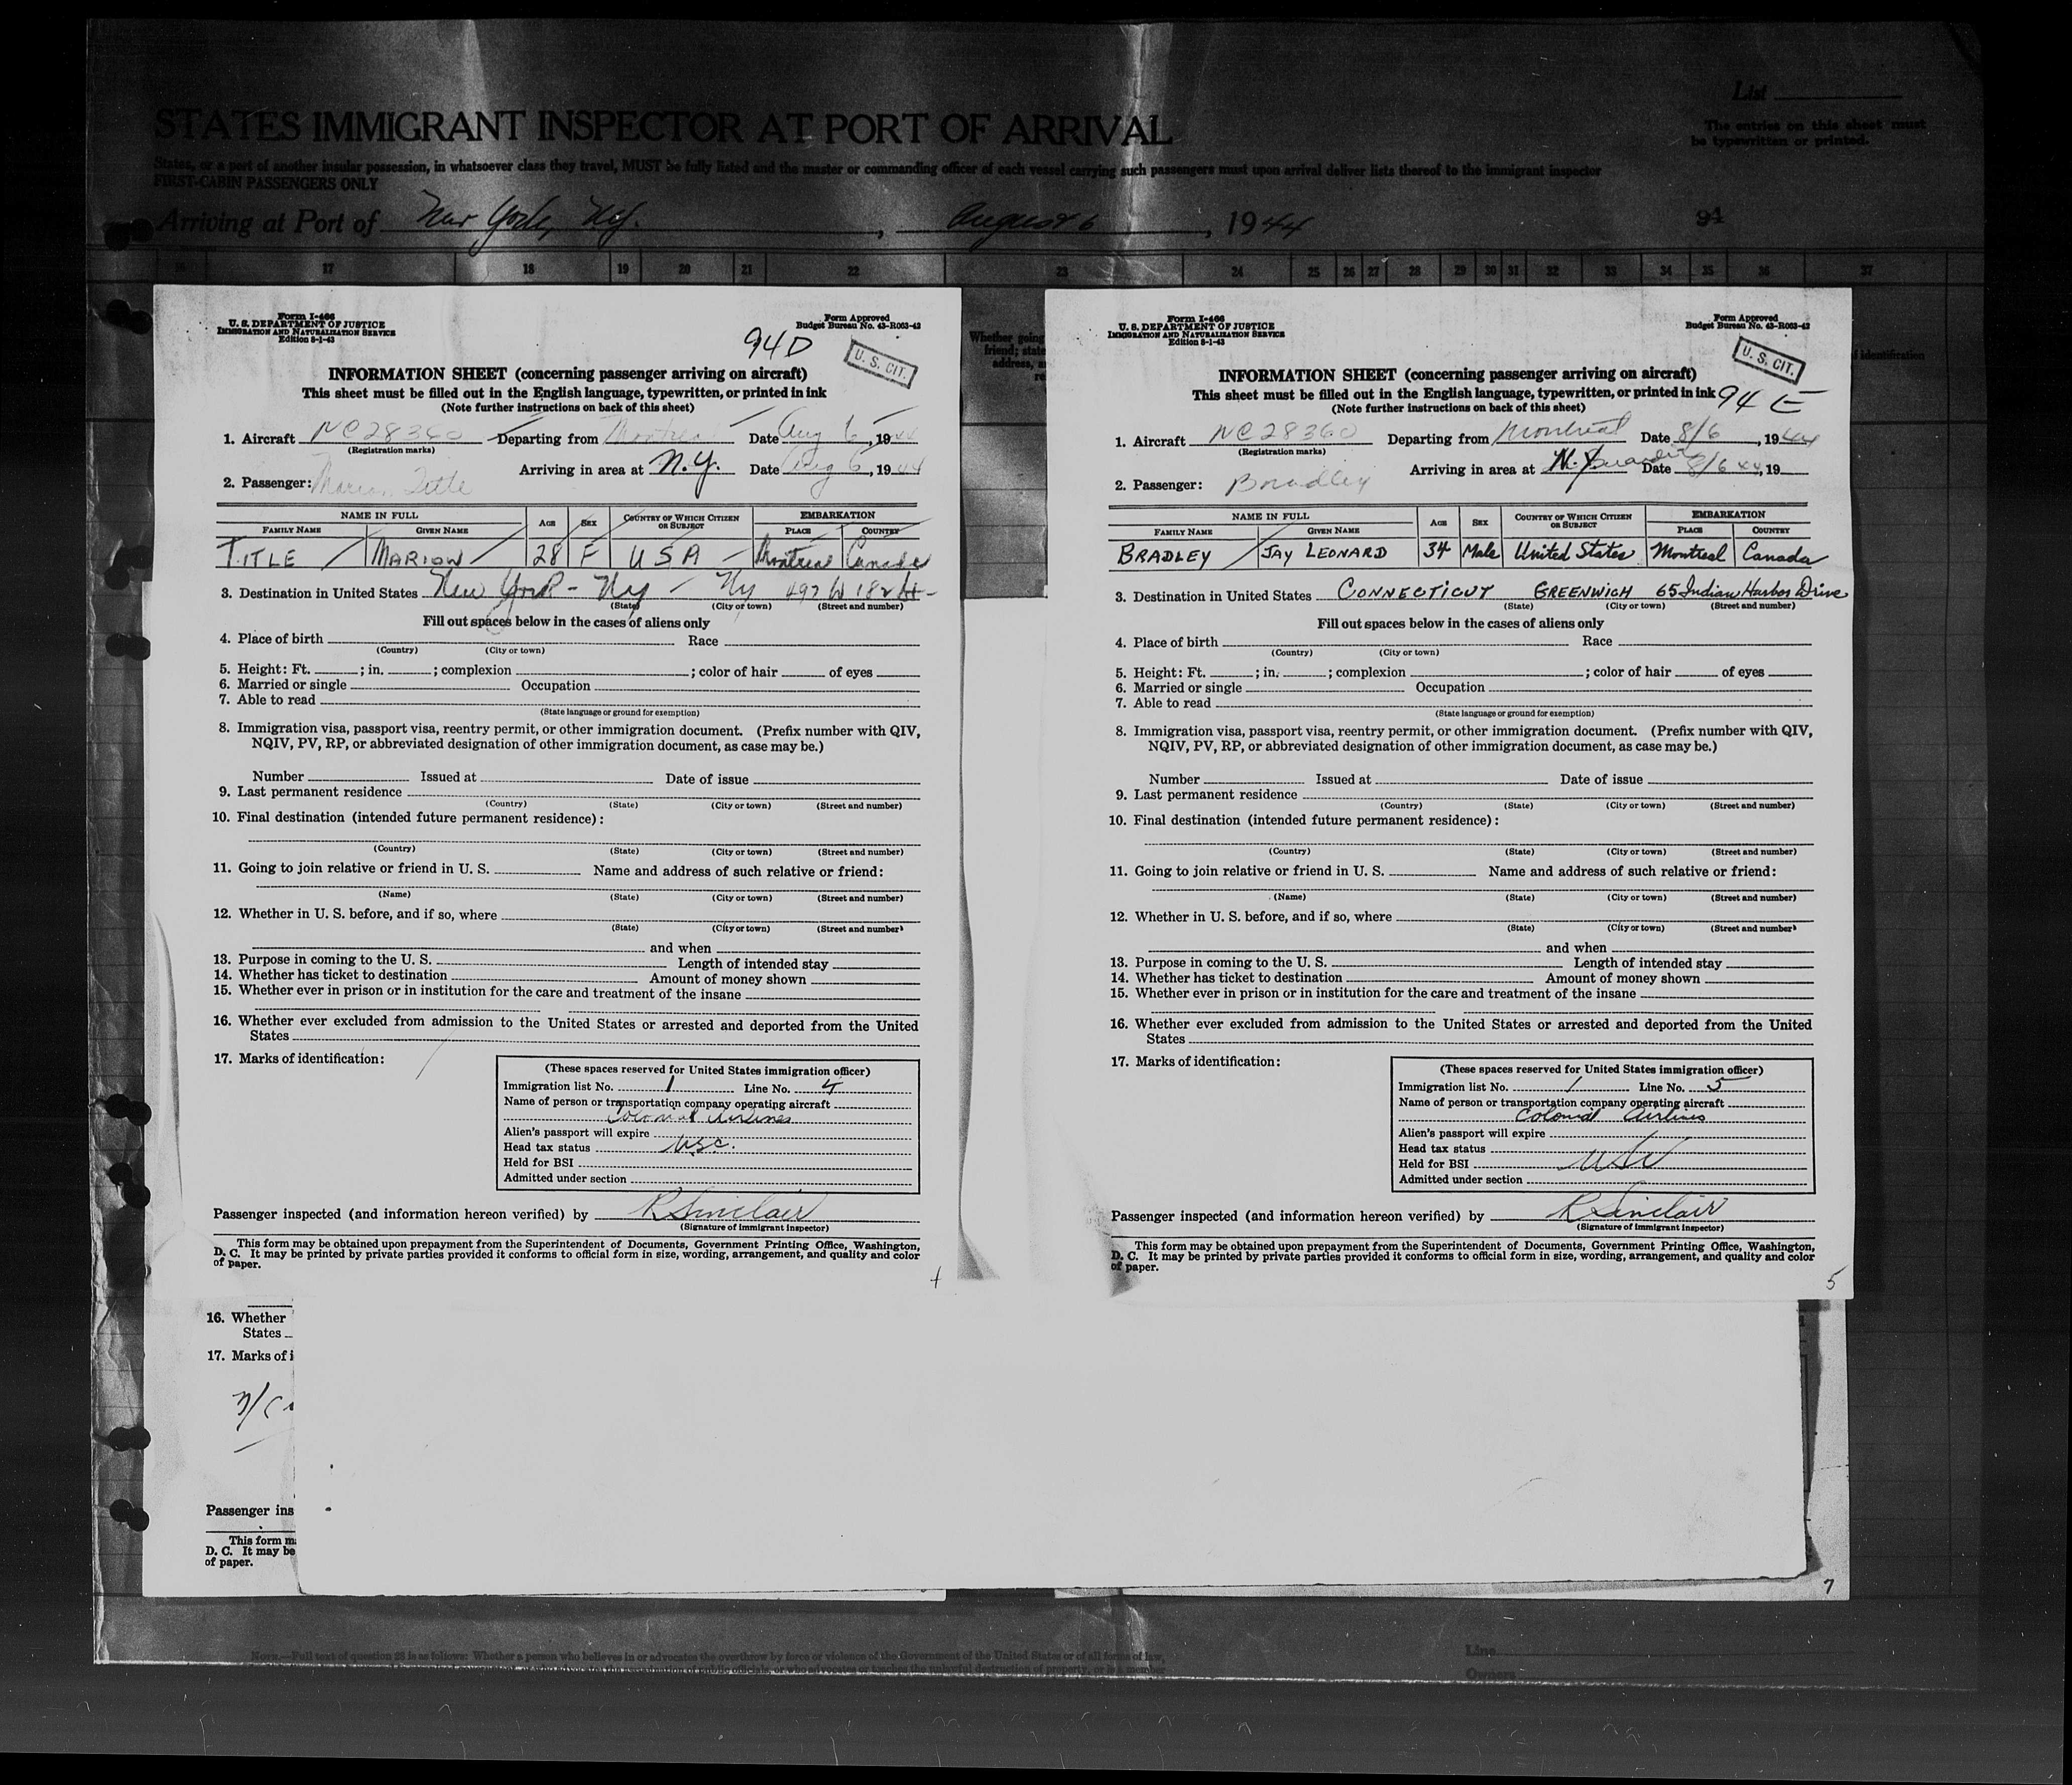 List
STATES IMMIGRANT INSPECTOR AT PORT OF ARRIVAL
The entries on this sheet must
be typewritten or printed.
States, or a port of another insular possession, in whatsoever class they travel, MUST be fully listed and the master or commanding officer of each vessel carrying such passengers must upon arrival deliver lists thereof to the immigrant inspector
FIRST-CABIN PASSENGERS ONLY
Arriving at Port of New York, N.Y., August 6, 1944
94
16 17 18 19 20 21 22 23 24 25 26 27 28 29 30 31 32 33 34 35 36 37
Form I-466
U. S. DEPARTMENT OF JUSTICE
IMMIGRATION AND NATURALIZATION SERVICE
Edition 8-1-43
Form Approved
Budget Bureau No. 43-R063-42
94D
U. S. CIT.
INFORMATION SHEET (concerning passenger arriving on aircraft)
This sheet must be filled out in the English language, typewritten, or printed in ink
(Note further instructions on back of this sheet)
1. Aircraft NC28360 Departing from Montreal Date Aug 6, 1944
(Registration marks)
Arriving in area at N.Y. Date Aug 6, 1944
2. Passenger: Marion Title
NAME IN FULL AGE SEX COUNTRY OF WHICH CITIZEN OR SUBJECT EMBARKATION
FAMILY NAME GIVEN NAME PLACE COUNTRY
TITLE MARION 28 F USA Montreal Canada
3. Destination in United States New York - NY - NY 497 W 182 St -
(State) (City or town) (Street and number)
Fill out spaces below in the cases of aliens only
4. Place of birth Race
(Country) (City or town)
5. Height: Ft. ; in. ; complexion ; color of hair of eyes
6. Married or single Occupation
7. Able to read
(State language or ground for exemption)
8. Immigration visa, passport visa, reentry permit, or other immigration document. (Prefix number with QIV,
NQIV, PV, RP, or abbreviated designation of other immigration document, as case may be.)
Number Issued at Date of issue
9. Last permanent residence
(Country) (State) (City or town) (Street and number)
10. Final destination (intended future permanent residence):
(Country) (State) (City or town) (Street and number)
11. Going to join relative or friend in U. S. Name and address of such relative or friend:
(Name) (State) (City or town) (Street and number)
12. Whether in U. S. before, and if so, where
(State) (City or town) (Street and number)
and when
13. Purpose in coming to the U. S. Length of intended stay
14. Whether has ticket to destination Amount of money shown
15. Whether ever in prison or in institution for the care and treatment of the insane
16. Whether ever excluded from admission to the United States or arrested and deported from the United
States
17. Marks of identification:
(These spaces reserved for United States immigration officer)
Immigration list No. 1 Line No. 4
Name of person or transportation company operating aircraft
Colonial Airlines
Alien's passport will expire
Head tax status USC.
Held for BSI
Admitted under section
Passenger inspected (and information hereon verified) by R Sinclair
(Signature of immigrant inspector)
This form may be obtained upon prepayment from the Superintendent of Documents, Government Printing Office, Washington,
D. C. It may be printed by private parties provided it conforms to official form in size, wording, arrangement, and quality and color
of paper.
4
16. Whether
States
17. Marks of i
Passenger ins
This form m
D. C. It may be
of paper.
Whether going
friend; state
address, a
Form I-466
U. S. DEPARTMENT OF JUSTICE
IMMIGRATION AND NATURALIZATION SERVICE
Edition 8-1-43
Form Approved
Budget Bureau No. 43-R063-42
U. S. CIT.
of identification
INFORMATION SHEET (concerning passenger arriving on aircraft)
This sheet must be filled out in the English language, typewritten, or printed in ink 94 E
(Note further instructions on back of this sheet)
1. Aircraft NC28360 Departing from Montreal Date 8/6, 1944
(Registration marks)
Arriving in area at N.Y. Date 8/6 44, 19
2. Passenger: Bradley
NAME IN FULL AGE SEX COUNTRY OF WHICH CITIZEN OR SUBJECT EMBARKATION
FAMILY NAME GIVEN NAME PLACE COUNTRY
BRADLEY JAY LEONARD 34 Male United States Montreal Canada
3. Destination in United States CONNECTICUT GREENWICH 65 Indian Harbor Drive
(State) (City or town) (Street and number)
Fill out spaces below in the cases of aliens only
4. Place of birth Race
(Country) (City or town)
5. Height: Ft. ; in. ; complexion ; color of hair of eyes
6. Married or single Occupation
7. Able to read
(State language or ground for exemption)
8. Immigration visa, passport visa, reentry permit, or other immigration document. (Prefix number with QIV,
NQIV, PV, RP, or abbreviated designation of other immigration document, as case may be.)
Number Issued at Date of issue
9. Last permanent residence
(Country) (State) (City or town) (Street and number)
10. Final destination (intended future permanent residence):
(Country) (State) (City or town) (Street and number)
11. Going to join relative or friend in U. S. Name and address of such relative or friend:
(Name) (State) (City or town) (Street and number)
12. Whether in U. S. before, and if so, where
(State) (City or town) (Street and number)
and when
13. Purpose in coming to the U. S. Length of intended stay
14. Whether has ticket to destination Amount of money shown
15. Whether ever in prison or in institution for the care and treatment of the insane
16. Whether ever excluded from admission to the United States or arrested and deported from the United
States
17. Marks of identification:
(These spaces reserved for United States immigration officer)
Immigration list No. 1 Line No. 5
Name of person or transportation company operating aircraft
Colonial Airlines
Alien's passport will expire
Head tax status
Held for BSI
Admitted under section
Passenger inspected (and information hereon verified) by R Sinclair
(Signature of immigrant inspector)
This form may be obtained upon prepayment from the Superintendent of Documents, Government Printing Office, Washington,
D. C. It may be printed by private parties provided it conforms to official form in size, wording, arrangement, and quality and color
of paper.
5
7
NOTE.—Full text of question 28 is as follows: Whether a person who believes in or advocates the overthrow by force or violence of the Government of the United States or of all forms of law,
Line
Owners